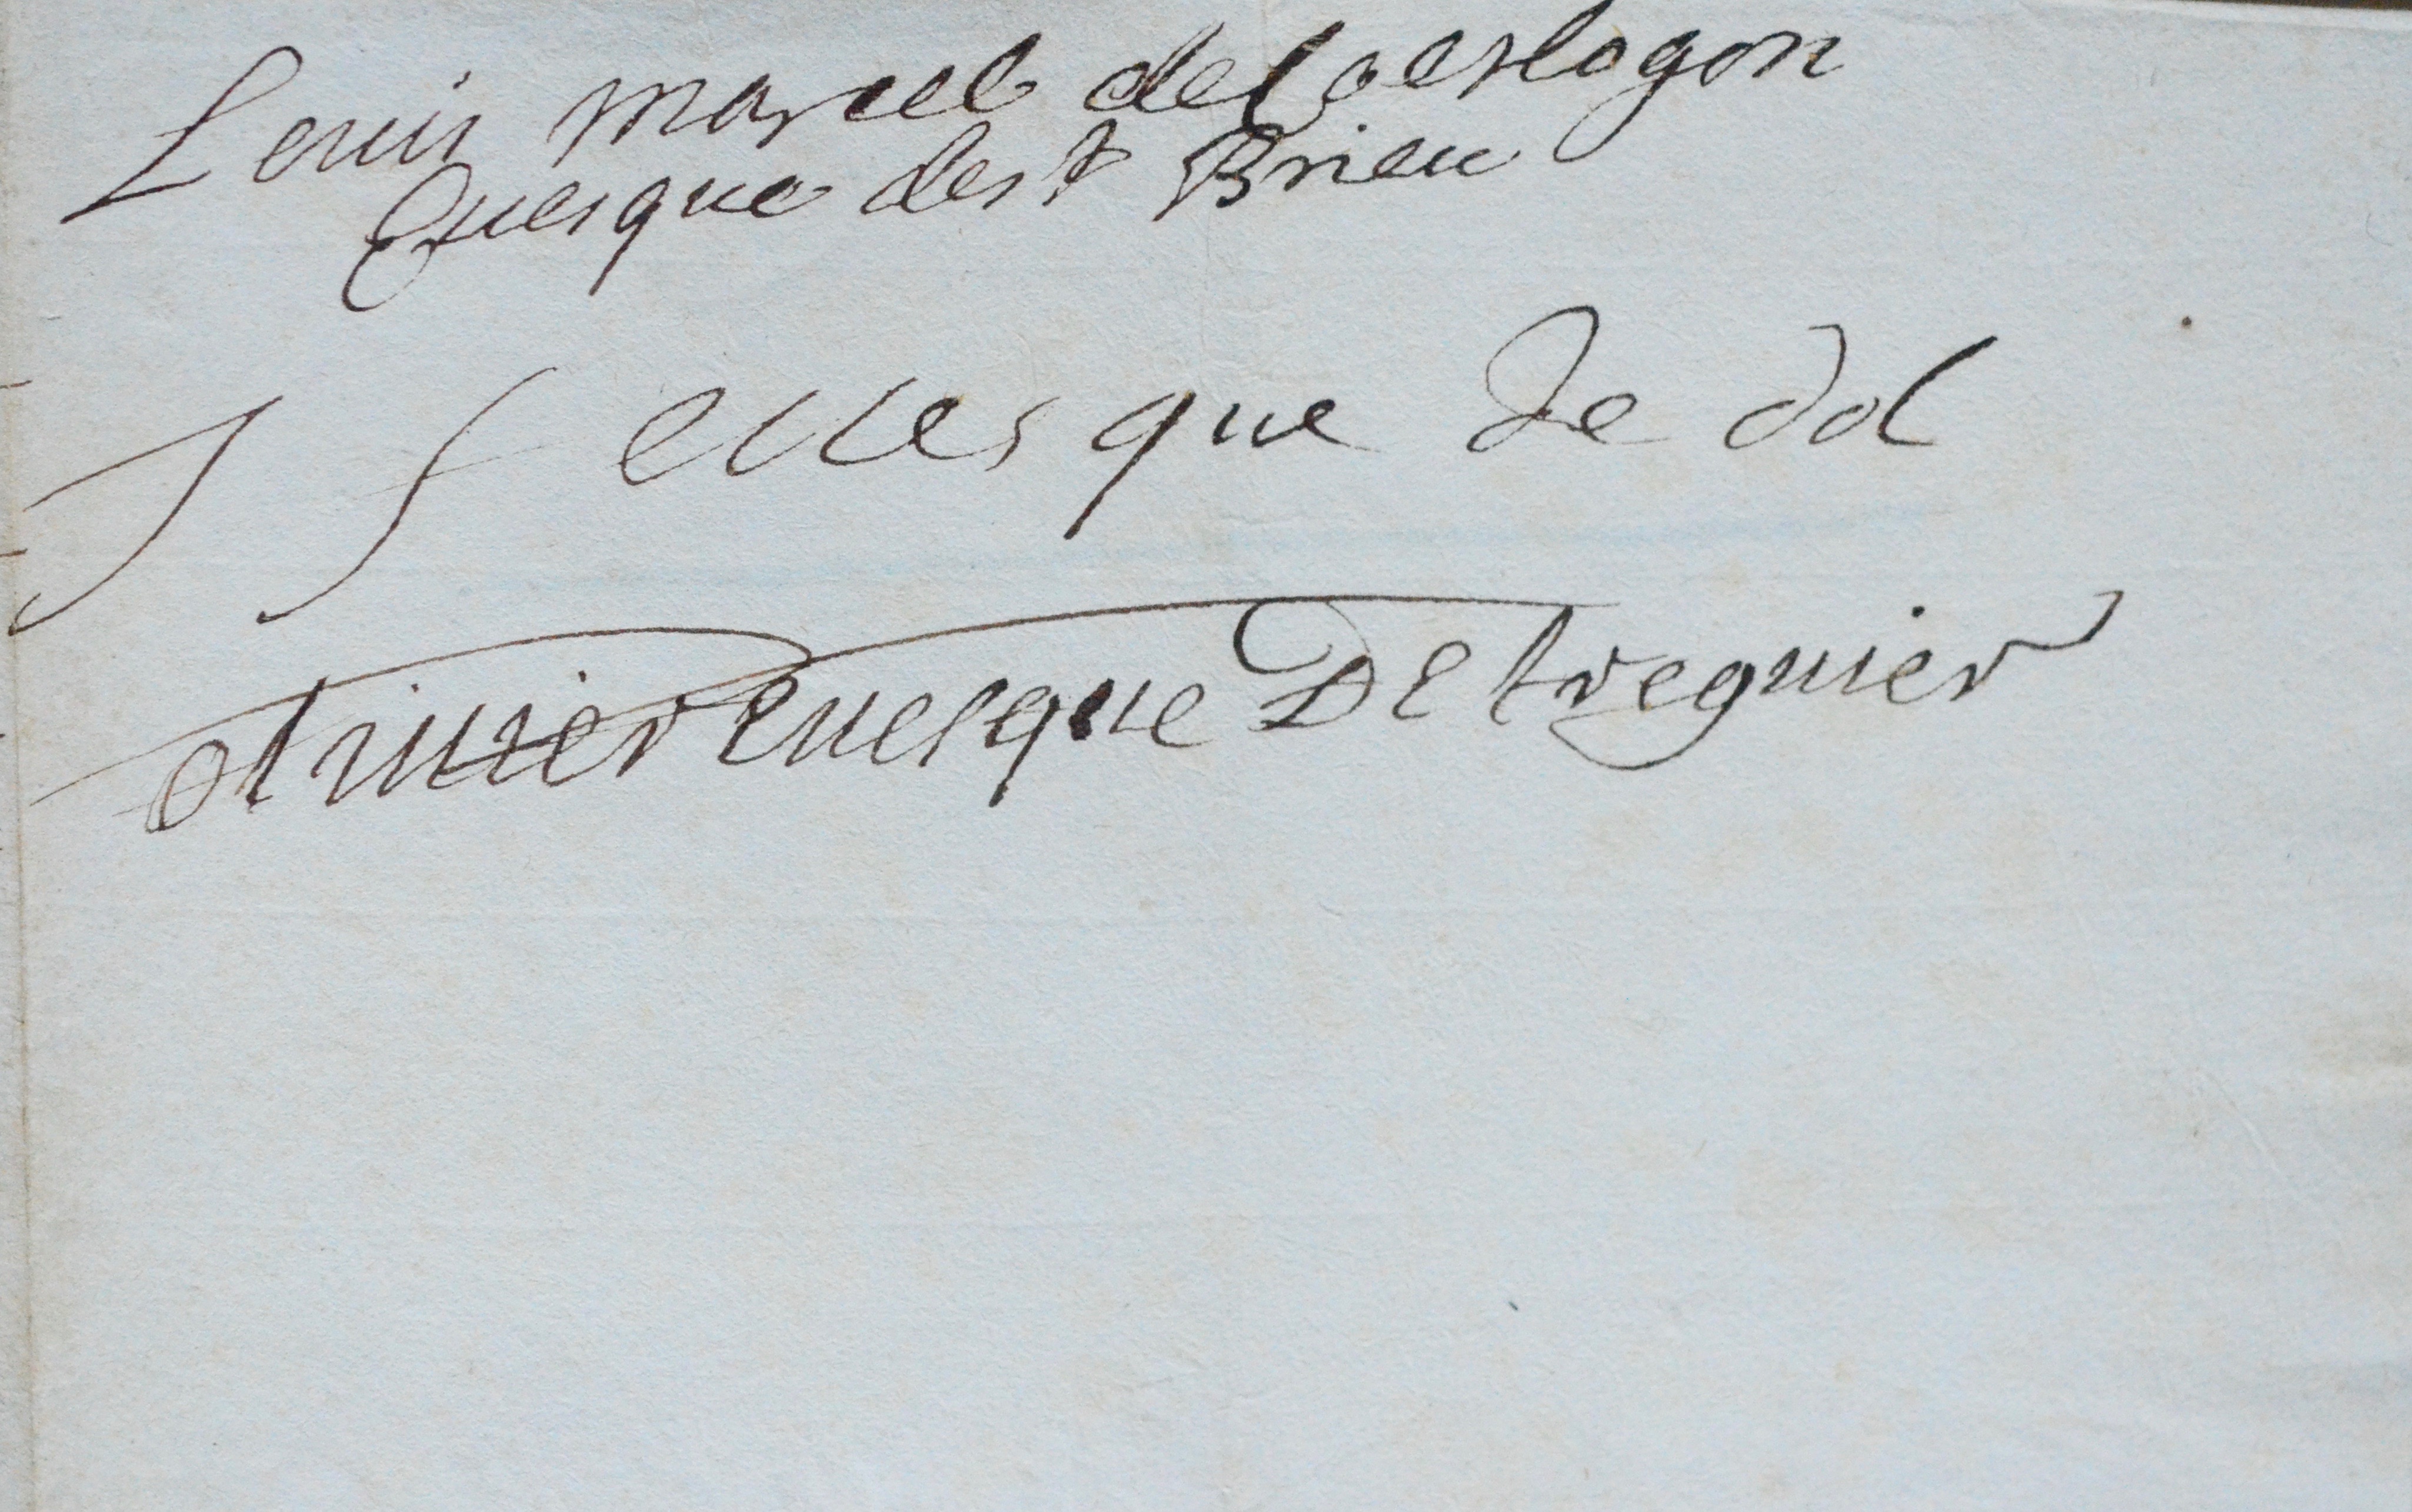 Louis marcel de Coetlogon
Evesque de st Brieu
J f evesque de dol
olivier evesque De treguier